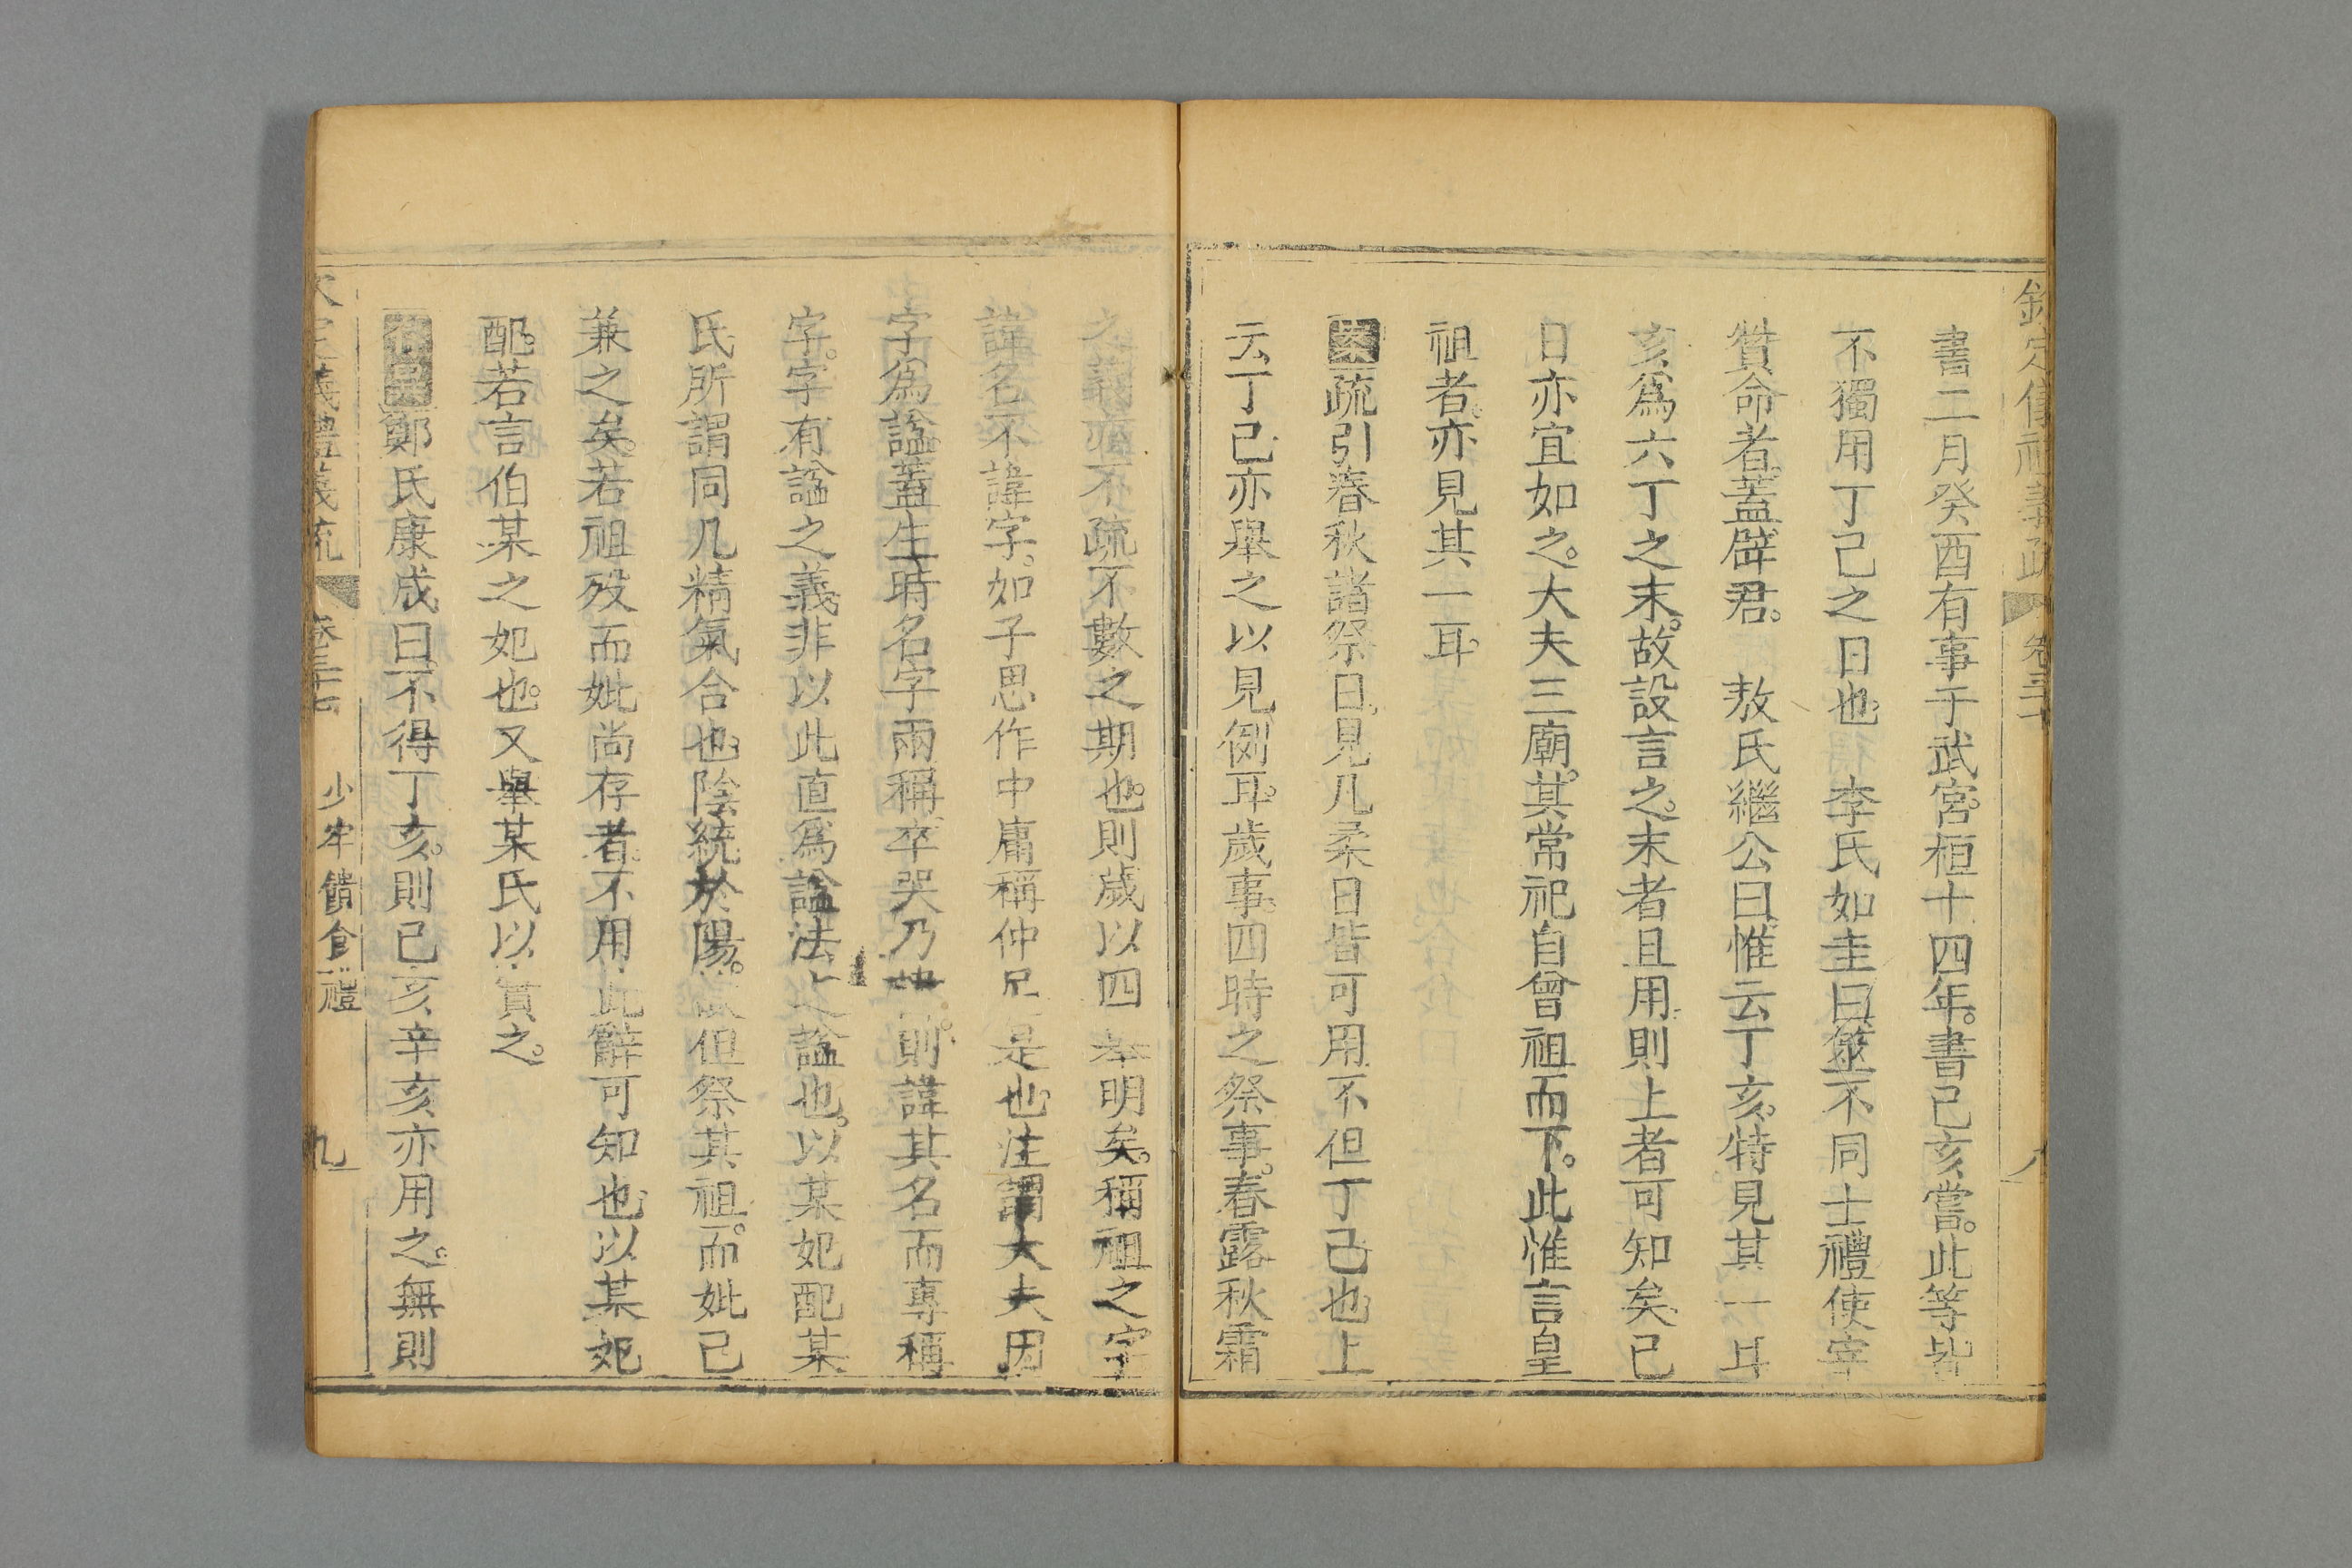 欽定儀禮義疏 卷三十 八
書二月癸酉有事于武宮。桓十四年。書己亥嘗。此等皆
不獨用丁己之日也。 李氏如圭曰筮不同士禮使宰
贊命者。蓋辟君。 敖氏繼公曰惟云丁亥。特見其一耳
亥爲六丁之末。故設言之。末者且用則上者可知矣。己
日亦宜如之。大夫三廟。其常祀自曾祖而下。此惟言皇
祖者。亦見其一耳。
案疏引春秋諸祭日。見凡柔日皆可用不但丁己也。上
云丁己亦舉之以見例耳。歲事。四時之祭事。春露秋霜
之義而不疏不數之期也。則歲以四舉明矣。稱祖之字
諱名不諱字。如子思作中庸稱仲尼是也。注謂大夫因
字爲諡。蓋生時名字兩稱。卒哭乃 則諱其名而專稱
字。字有諡之義非以此直爲諡法之諡也。以某妃配某
氏所謂同几精氣合也。陰統於陽。故但祭其祖。而妣已
兼之矣。若祖歿而妣尚存者。不用此辭可知也。以某妃
配。若言伯某之妃也。又舉某氏以實之。
鄭氏康成曰。不得丁亥。則己亥辛亥亦用之。無則
欽定儀禮義疏 卷三十七 少牢饋食禮 九